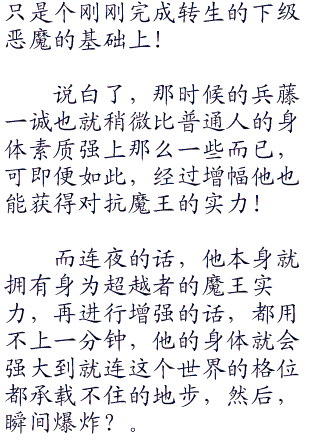 只是个刚刚完成转生的下级
恶魔的基础上！
说白了，那时候的兵藤
一诚也就稍微比普通人的身
体素质强上那么一些而已，
可即便如此，经过增幅他也
能获得对抗魔王的实力！
而连夜的话，他本身就
拥有身为超越者的魔王实
力，再进行增强的话，都用
不上一分钟，他的身体就会
强大到就连这个世界的格位
都承载不住的地步，然后，
瞬间爆炸？。